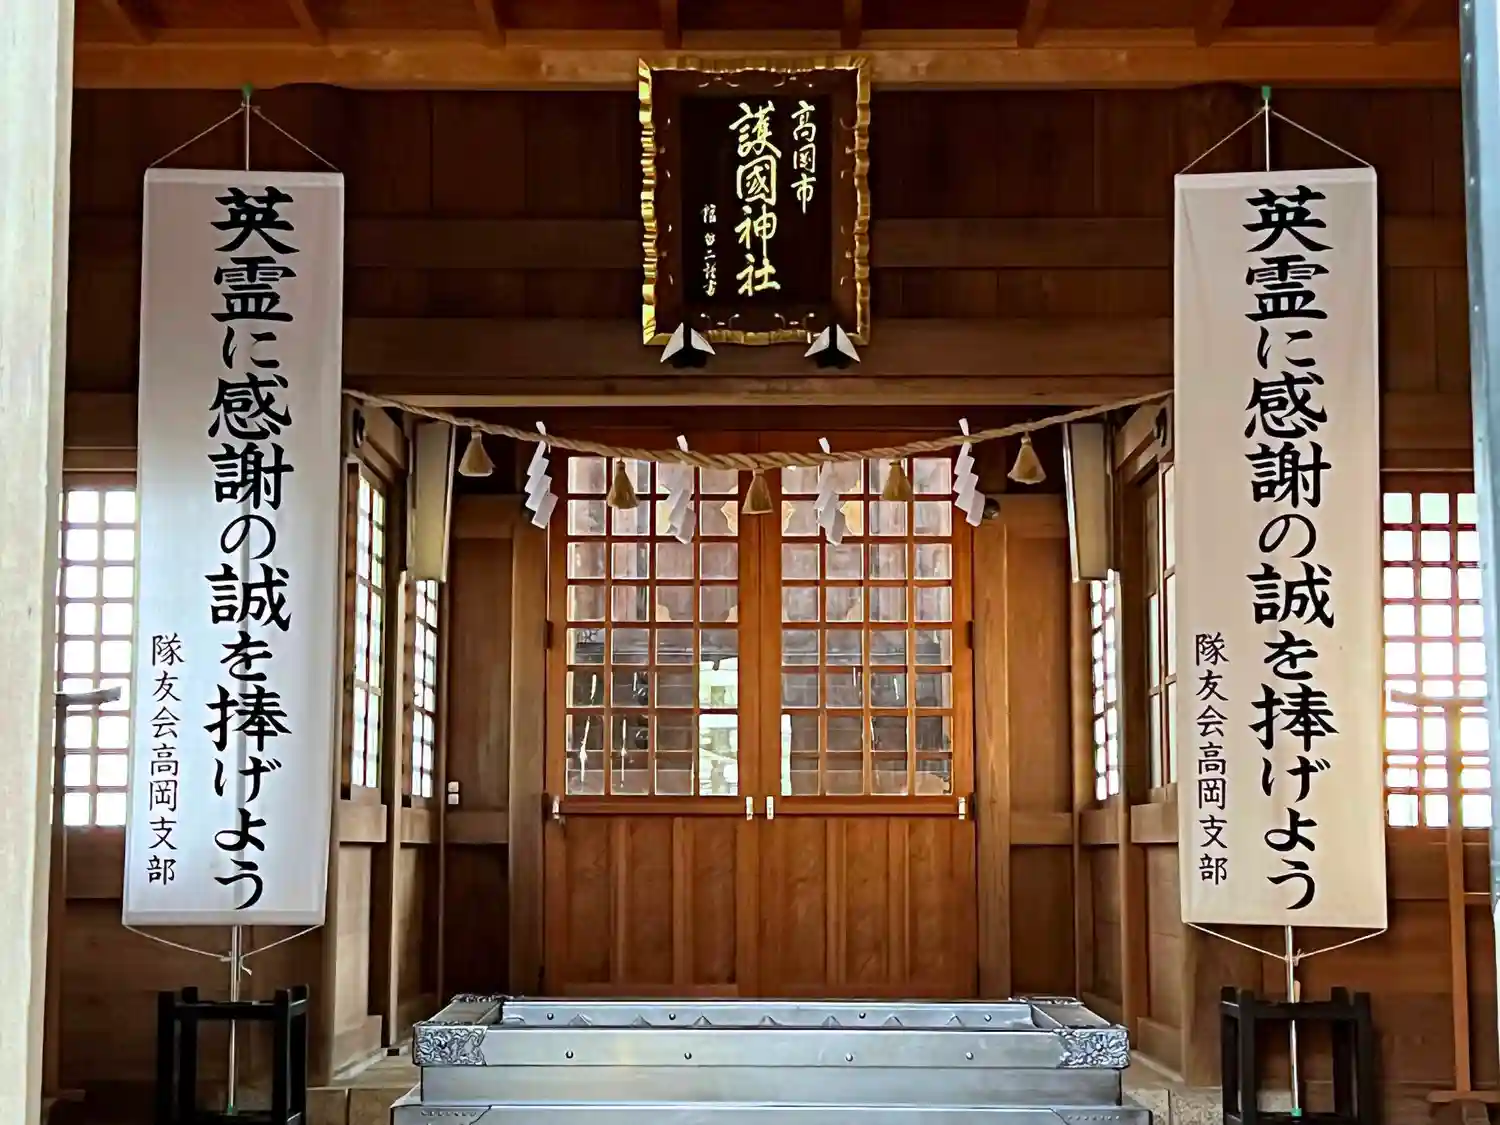 高岡市
護國神社
英霊に感謝の誠を捧げよう
隊友会高岡支部
英霊に感謝の誠を捧げよう
隊友会高岡支部